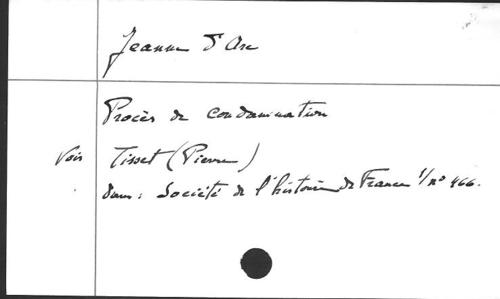 Jeanne d'Arc
Procès de condamnation
Voir Tisset (Pierre)
dans: Société de l'histoire de France 1/n° 466.